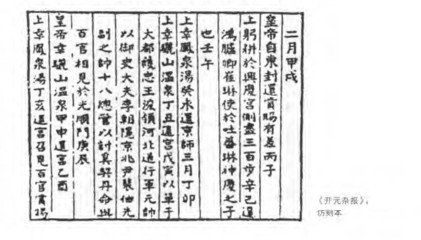 二月甲戌
皇帝自東封還賞賜有差丙子
上躬耕於興慶宮側盡三百步辛已遣
鴻臚卿崔琳使於吐蕃琳神慶之子
也壬午
上幸鳳泉湯癸水還京師三月丁卯
上幸驪山溫泉丁丑還宮戊寅以單于
大都護忠王浚領河北道行軍元帥
以御史大夫李朝隱京兆尹裴伷先
副之帥十八總管以討奚契丹命與
百官相見於光順門庚辰
皇帝幸驪山溫泉甲申還宮乙酉
上幸鳳泉湯丁亥還宮召見百官賞賜
《开元杂报》，
仿刻本